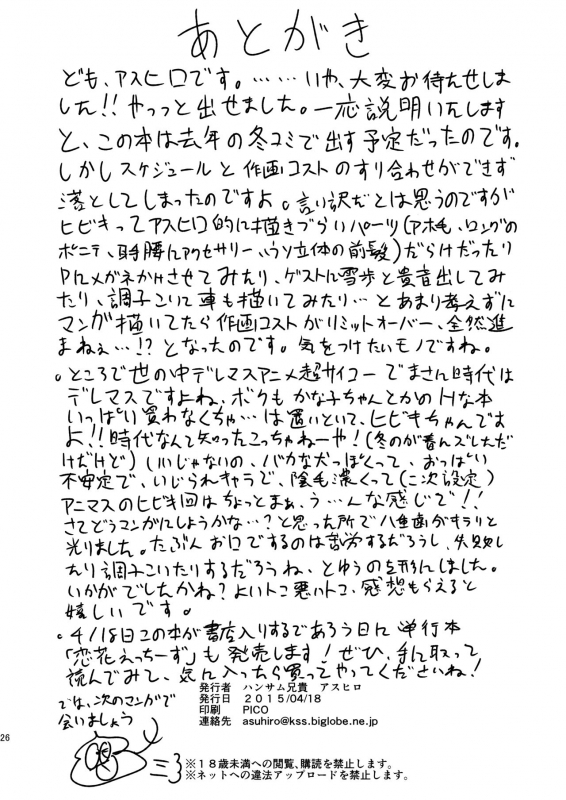 あとがき
ども、アスヒロです。……いや、大変お待たせしま
した!!やっっと出せました。一応説明いたします
と、この本は去年の冬コミで出す予定だったのです。
しかしスケジュールと作画コストのすり合わせができず
落としてしまったのですよ。言い訳だとは思うのですが
ヒビキってアスヒロ的に描きづらいパーツ(アホ毛、ロングの
ポニテ、腰にアクセサリー、立体の前髪)だらけだったり
Pにメガネかけさせてみたり、ゲストに雪歩と貴音出してみ
たり、調子こいて車も描いてみたり…とあまり考えずに
マンガ描いてたら作画コストがリミットオーバー、全然進
まねぇ…!?となったのです。気をつけたいモノですね。
。ところで世の中デレマスアニメ超サイコーでまさに時代は
デレマスですよね、ボクもかな子ちゃんとかのHな本
いっぱい買わなくちゃ…は置いといて、ヒビキちゃんです
よ!!時代なんて知ったこっちゃねーや!(冬のが春にズレただ
けだけど)いいじゃないの、バカな犬っぽくって、おっぱい
不安定で、いじられキャラで、陰毛濃くって(二次設定)
アニマスのヒビキ回はちょっとまぁ、う…んな感じで!!
さてどうマンガにしようかな…?と思った所で八重歯がキラリと
光りました。たぶんお口でするのは苦労するだろうし、失敗し
たり調子こいたりするだろうね、とゆうの形にしました。
いかがでしたかね?よいトコ悪いトコ、感想もらえると
嬉しいです。
。4/18日この本が書店入りするであろう日に単行本
「恋花えっちーず」も発売します!ぜひ、手に取って
読んでみて、気に入ったら買ってやってくださいね!
では、次のマンガで
会いましょう
発行者 ハンサム兄貴 アスヒロ
発行日 2015/04/18
印刷 PICO
連絡先 asuhiro@kss.biglobe.ne.jp
26
※18歳未満への閲覧、購読を禁止します。
※ネットへの違法アップロードを禁止します。